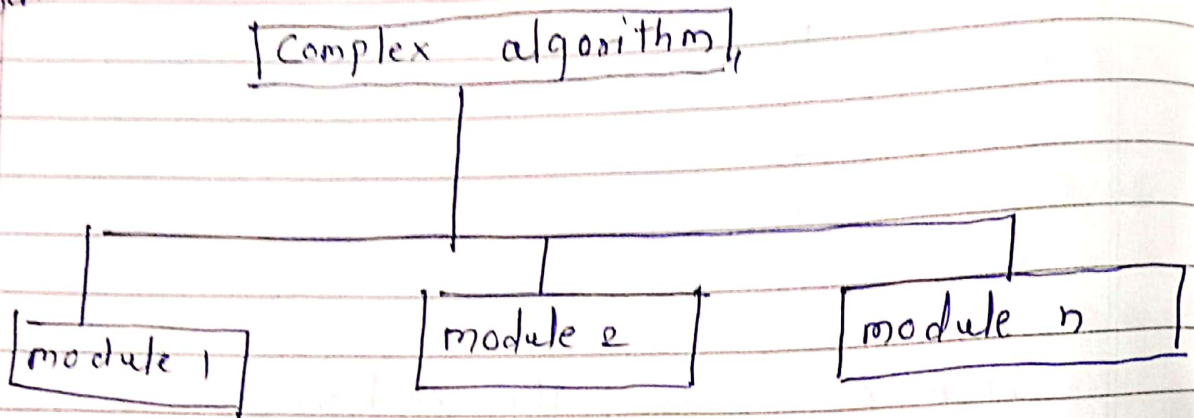 Complex algorithm
module 1
module 2
module n